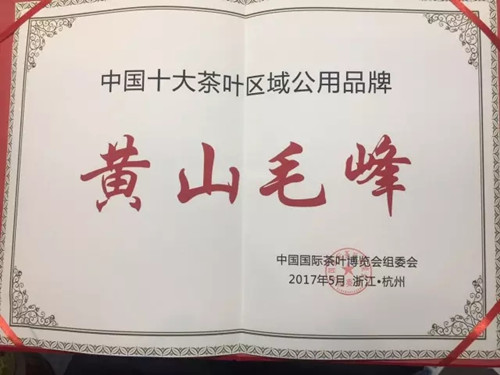 中国十大茶叶区域公用品牌
黄山毛峰
中国国际茶叶博览会组委会
2017年5月 浙江·杭州